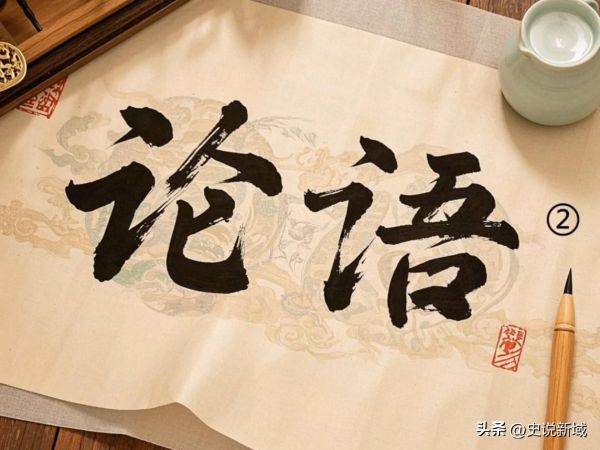 论语
②
头条 @史说新域